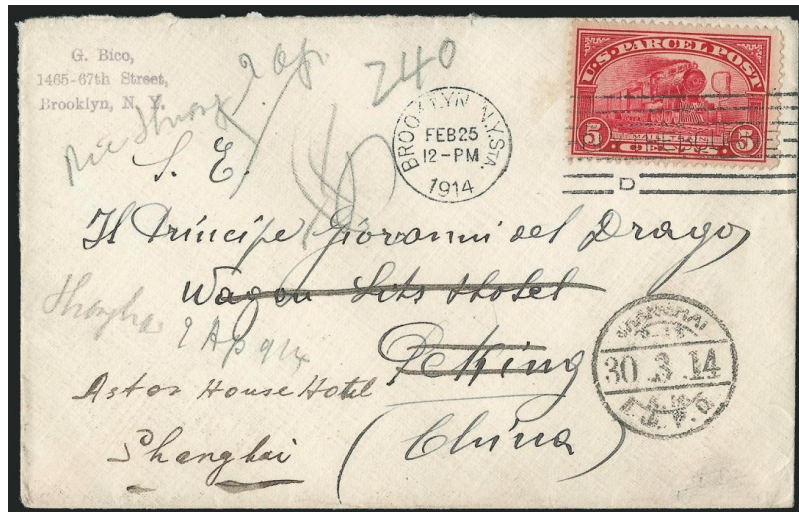 G. Bico,
1465-67th Street,
Brooklyn, N. Y.
240
BROOKLYN, N.Y. STA.
FEB 25
12-PM
1914
D
U.S. PARCEL POST
5 5
CENTS
S. E.
Il Principe Giovanni del Drago
Wagon Lits Hotel
Peking
(China)
Shanghai
2 Ap 914
Astor House Hotel
Shanghai
SHANGHAI
30 . 3 . 14
I. J. P. O.